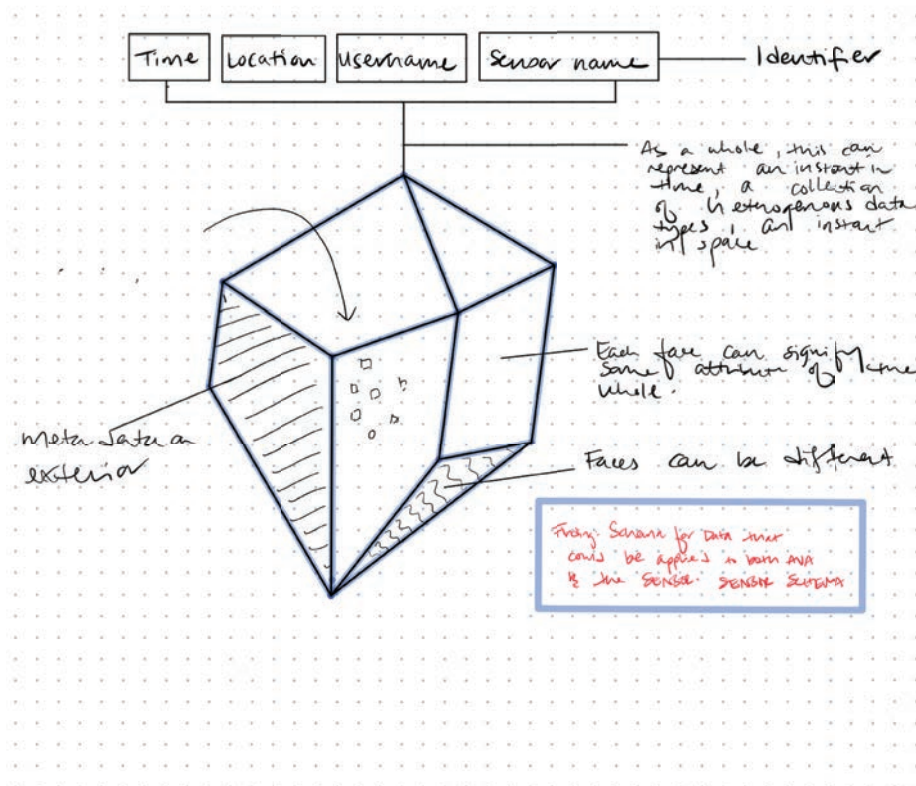 Time Location Username Sensor name Identifier
As a whole, this can
represent an instant in
time, a collection
of heterogenous data
types, an instant
in space
Each face can signify
some attribute of the
whole.
Meta data on
exterior
Faces can be different
Schema for Data that
could be applied to both
& the SENSOR. SENSOR SCHEMA